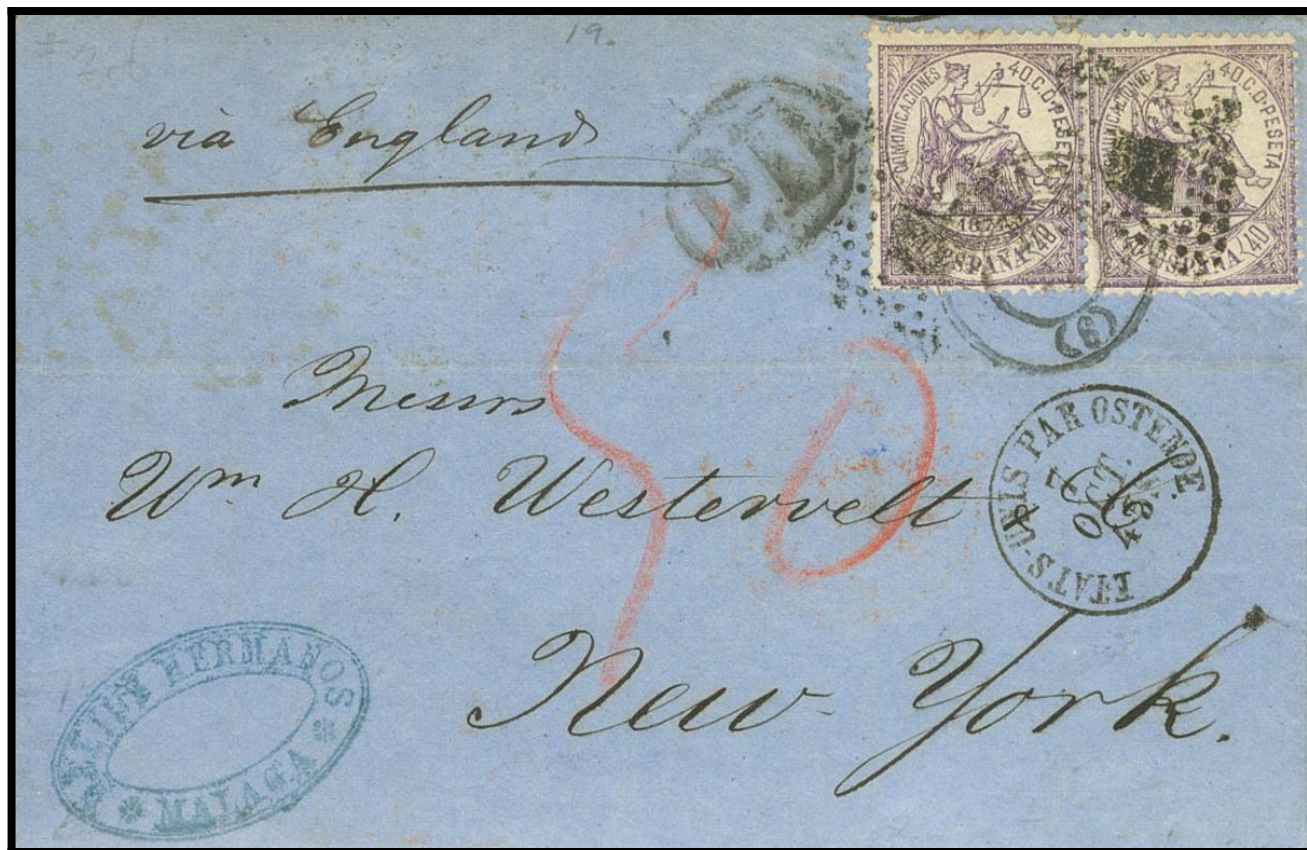 19.
via England
COMUNICACIONES 40 C. D. PESETA
40 ESPAÑA 40
COMUNICACIONES 40 C. D. PESETA
40 ESPAÑA 40
(6)
50
Messrs
Wm H. Westervelt
New York.
ETATS-UNIS PAR OSTENDE
HERMANOS
MALAGA